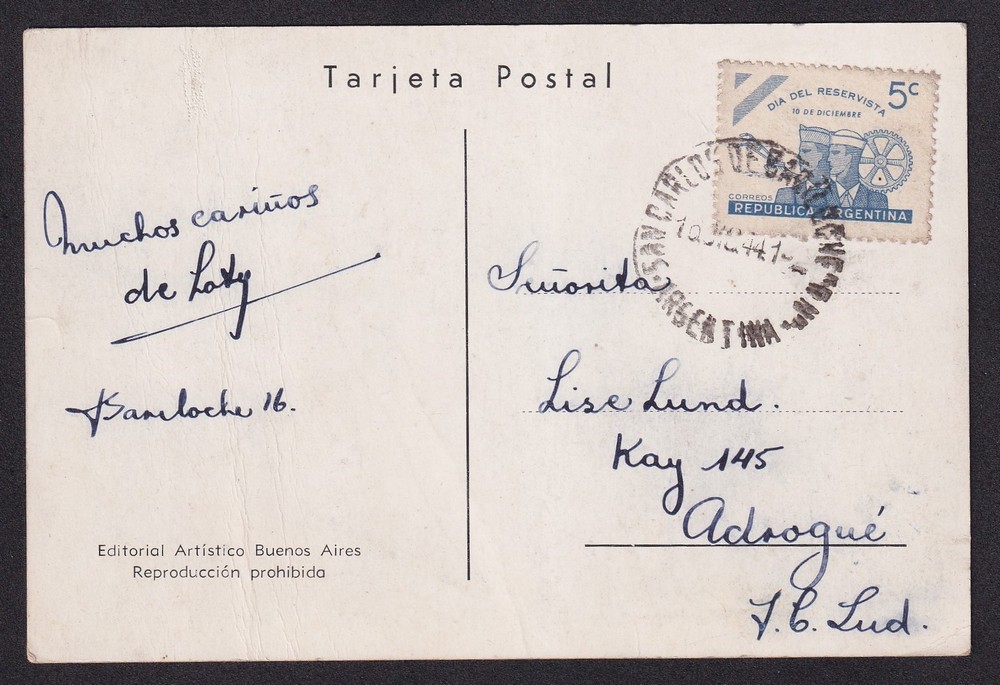 Tarjeta Postal
5c
DIA DEL RESERVISTA
10 DE DICIEMBRE
CORREOS
REPUBLICA ARGENTINA
SAN CARLOS DE BARILOCHE
ARGENTINA
muchos cariños
de Loty
Bariloche 16.
Editorial Artístico Buenos Aires
Reproducción prohibida
Señorita
Lise Lund.
Kay 145
Adrogué
F.C. Sud.